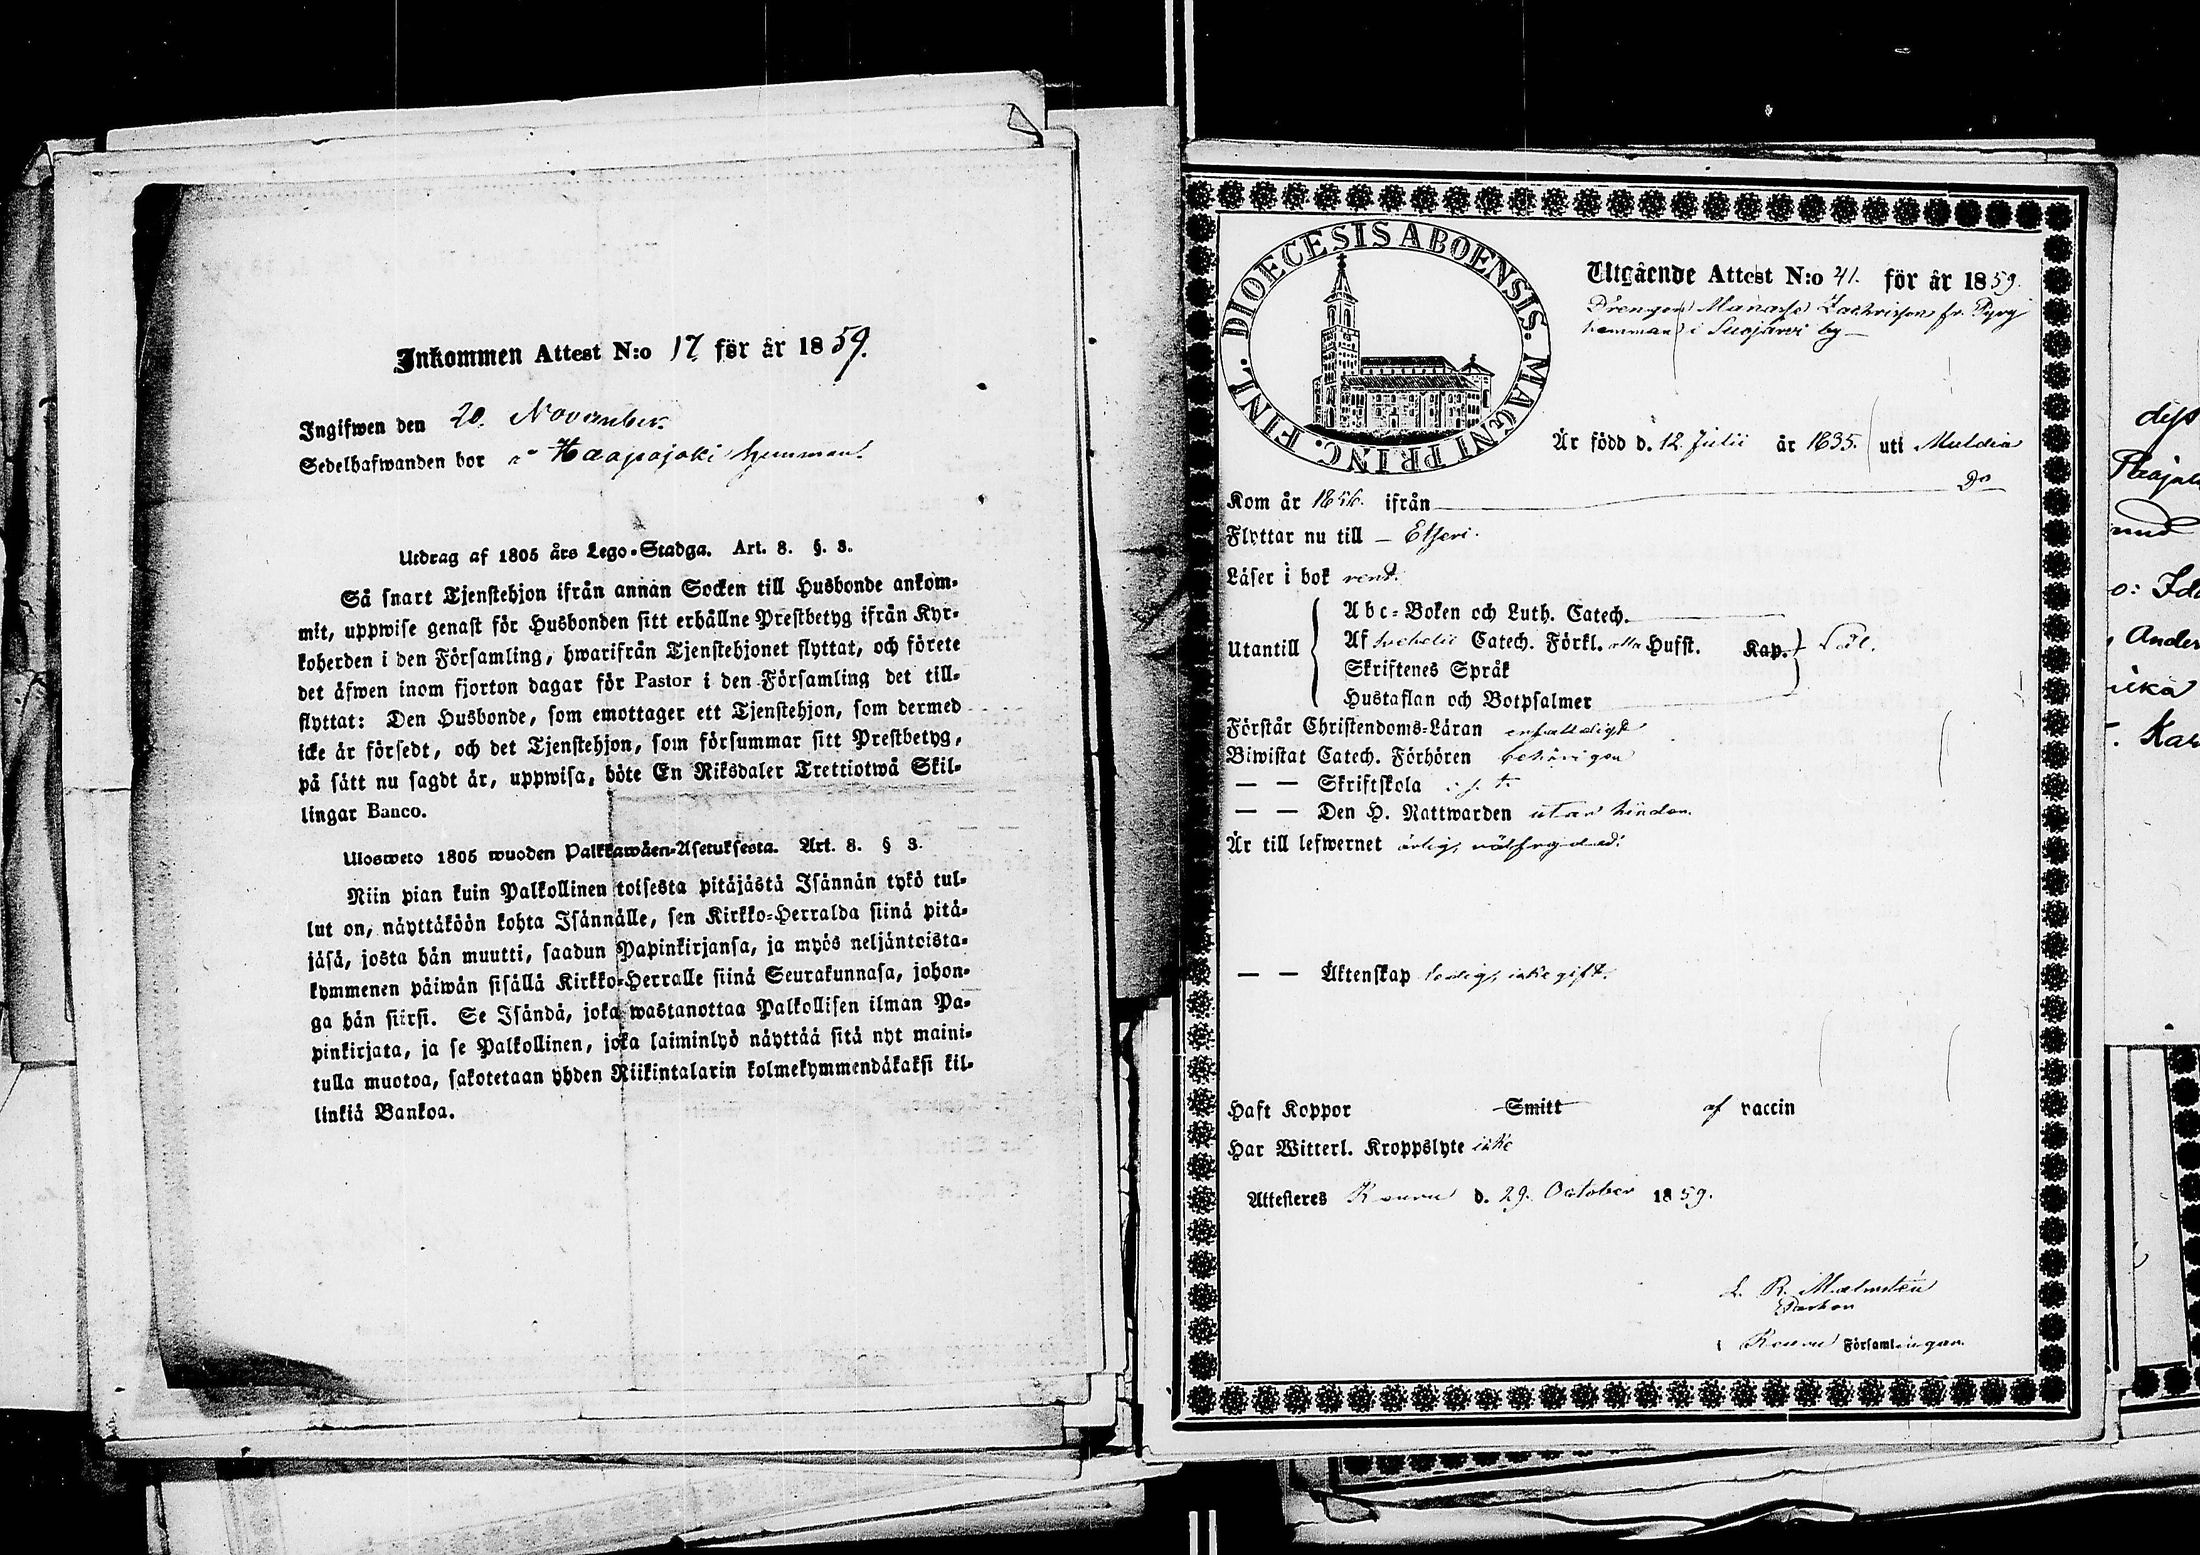 Inkommen Attest N:o 17 för år 1859.
Ingifwen den 20. November.
Sedelhafwanden bor å Haapajoki hemman.
Utdrag af 1805 års Lego-Stadga. Art. 8. §. 3.
Så snart Tjenstehjon ifrån annan Socken till Husbonde ankom-
mit, uppwise genast för Husbonden sitt erhållne Prestbetyg ifrån Kyr-
koherden i den Församling, hwarifrån Tjenstehjonet flyttat, och förete
det äfwen inom fjorton dagar för Pastor i den Församling det till-
flyttat: Den Husbonde, som emottager ett Tjenstehjon, som dermed
icke är försedt, och det Tjenstehjon, som försummar sitt Prestbetyg,
på sätt nu sagdt är, uppwisa, böte En Riksdaler Trettiotwå Skil-
lingar Banco.
Ulosweto 1805 wuoden Palkkawäen-Asetuksesta. Art. 8. § 3.
Niin pian kuin Palkollinen toisesta pitäjästä Isännän tykö tul-
lut on, näyttäköön kohta Isännälle, sen Kirkko-Herralda siinä pitä-
jäsä, josta hän muutti, saadun Papinkirjansa, ja myös neljäntoista-
kymmenen päiwän sisällä Kirkko-Herralle siinä Seurakunnasa, johon-
ga hän siirsi. Se Isändä, joka wastanottaa Palkollisen ilman Pa-
pinkirjata, ja se Palkollinen, joka laiminlyö näyttää sitä nyt maini-
tulla muotoa, sakotetaan yhden Riikintalarin kolmekymmendäkaksi kil-
linkiä Bankoa.
DIOECESIS ABOENSIS. MAGNI PRINC. FINL.
Utgående Attest N:o 41. för år 1859.
Drengen Manasse Zachrisson fr. Pyry
hemman i Suojärvi by
Är född d. 12 Julii år 1835. uti Muldia
Kom år 1856. ifrån Do
Flyttar nu till Etseri.
Läser i bok rent.
Utantill
Abc-Boken och Luth. Catech.
Af Svebelii Catech. Förkl. Husst. Kap.
Skriftenes Språk
Hustaflan och Botpsalmer
Förstår Christendoms-Läran enfaldigt
Biwistat Catech. Förhören behörigen
— — Skriftskola
— — Den H. Nattwarden utan hinder.
Är till lefwernet ärlig, välfrejdad.
— — Äktenskap ledig, icke gift.
Haft Koppor Smitt af vaccin
Har Witterl. Kroppslyte icke
Attesteres Keuru d. 29. October 1859.
L. R. Malmstén
Pastor
i Keuru Församlingen.
Ander
Kar